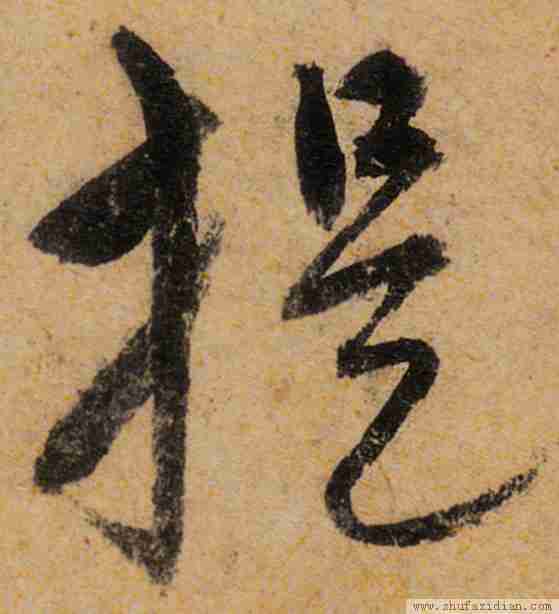 提
www.shufazidian.com